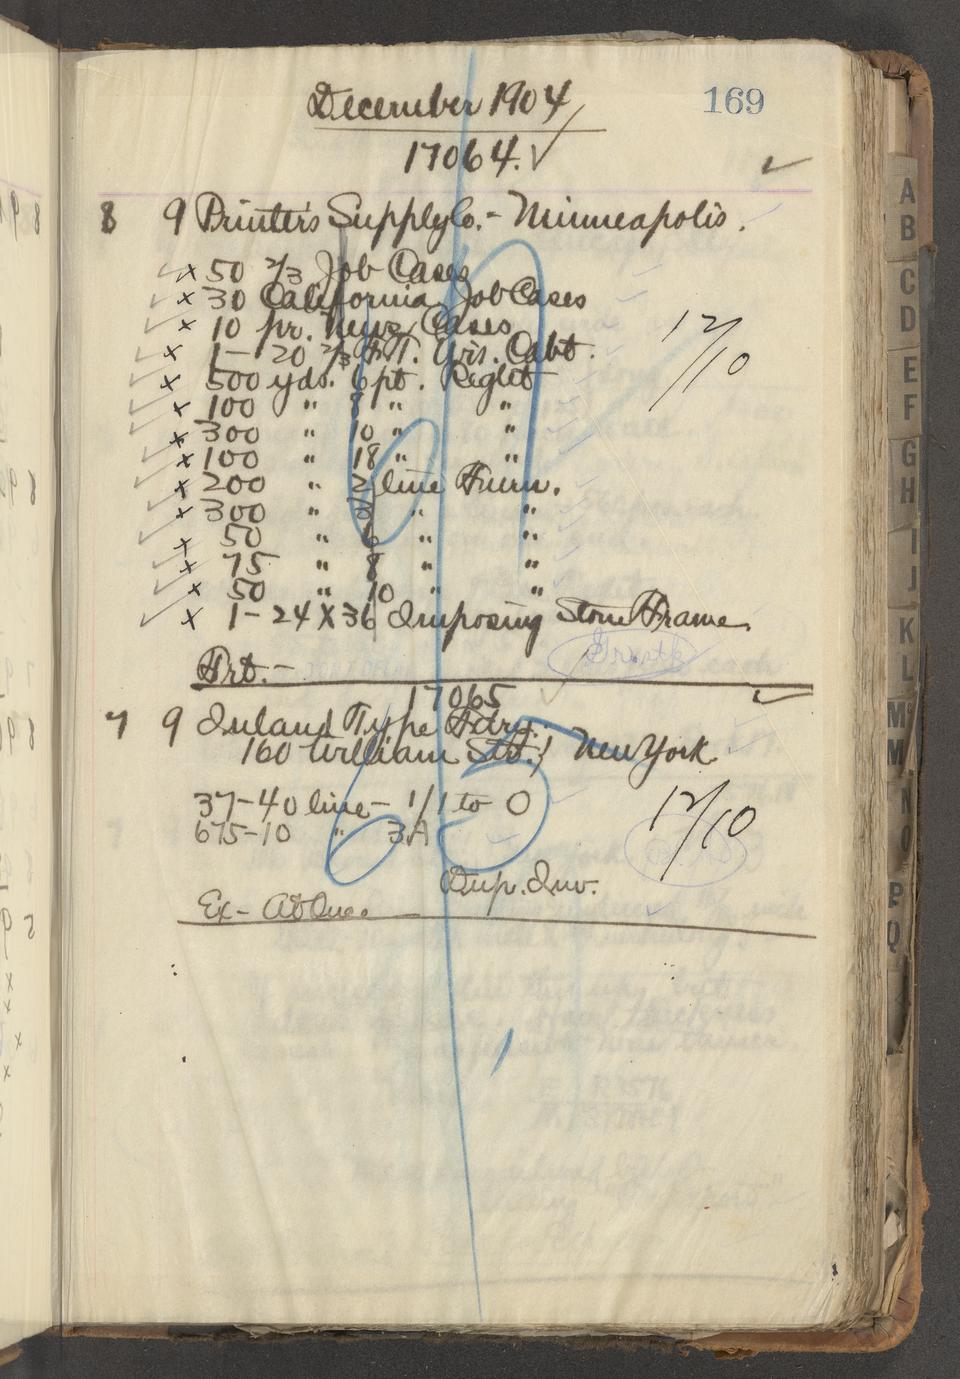 169
December 1904
17064.
8 9 Printers Supply Co. - Minneapolis.
x 50 2/3 Job Cases
x 30 California Job Cases
x 10 pr. News Cases
x 1-20 2/3 F.T. Wis. Cabt.
x 500 yds. 6 pt. Reglet
x 100 " 8 " "
x 300 " 10 " "
x 100 " 18 " "
x 200 " 2 line Furn.
x 300 " 3 " "
x 50 " 6 " "
x 75 " 8 " "
x 50 " 10 " "
x 1-24 X 36 Imposing Stone Frame.
12/10
Frt.-
17065
7 9 Inland Type Fdry.
160 William St., New York
37-40 line - 1/1 to O
675-10 " 3A
12/10
Dup. Inv.
Ex- At Once
A
B
C
D
E
F
G
H
I
J
K
L
M
M
N
O
P
Q